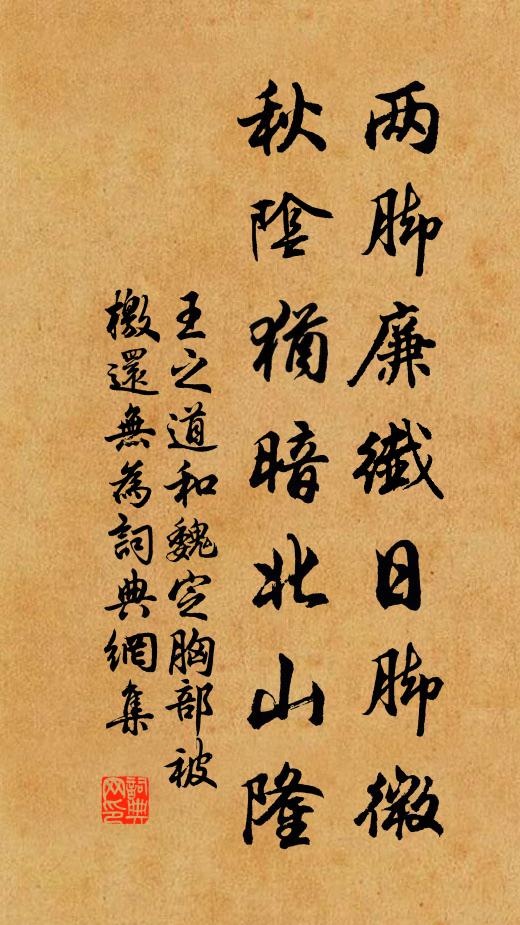 两脚廉纤日脚微
秋陰猶暗北山隆
王之道和魏定胸部被
檄還無為詞典網集
詞典网印